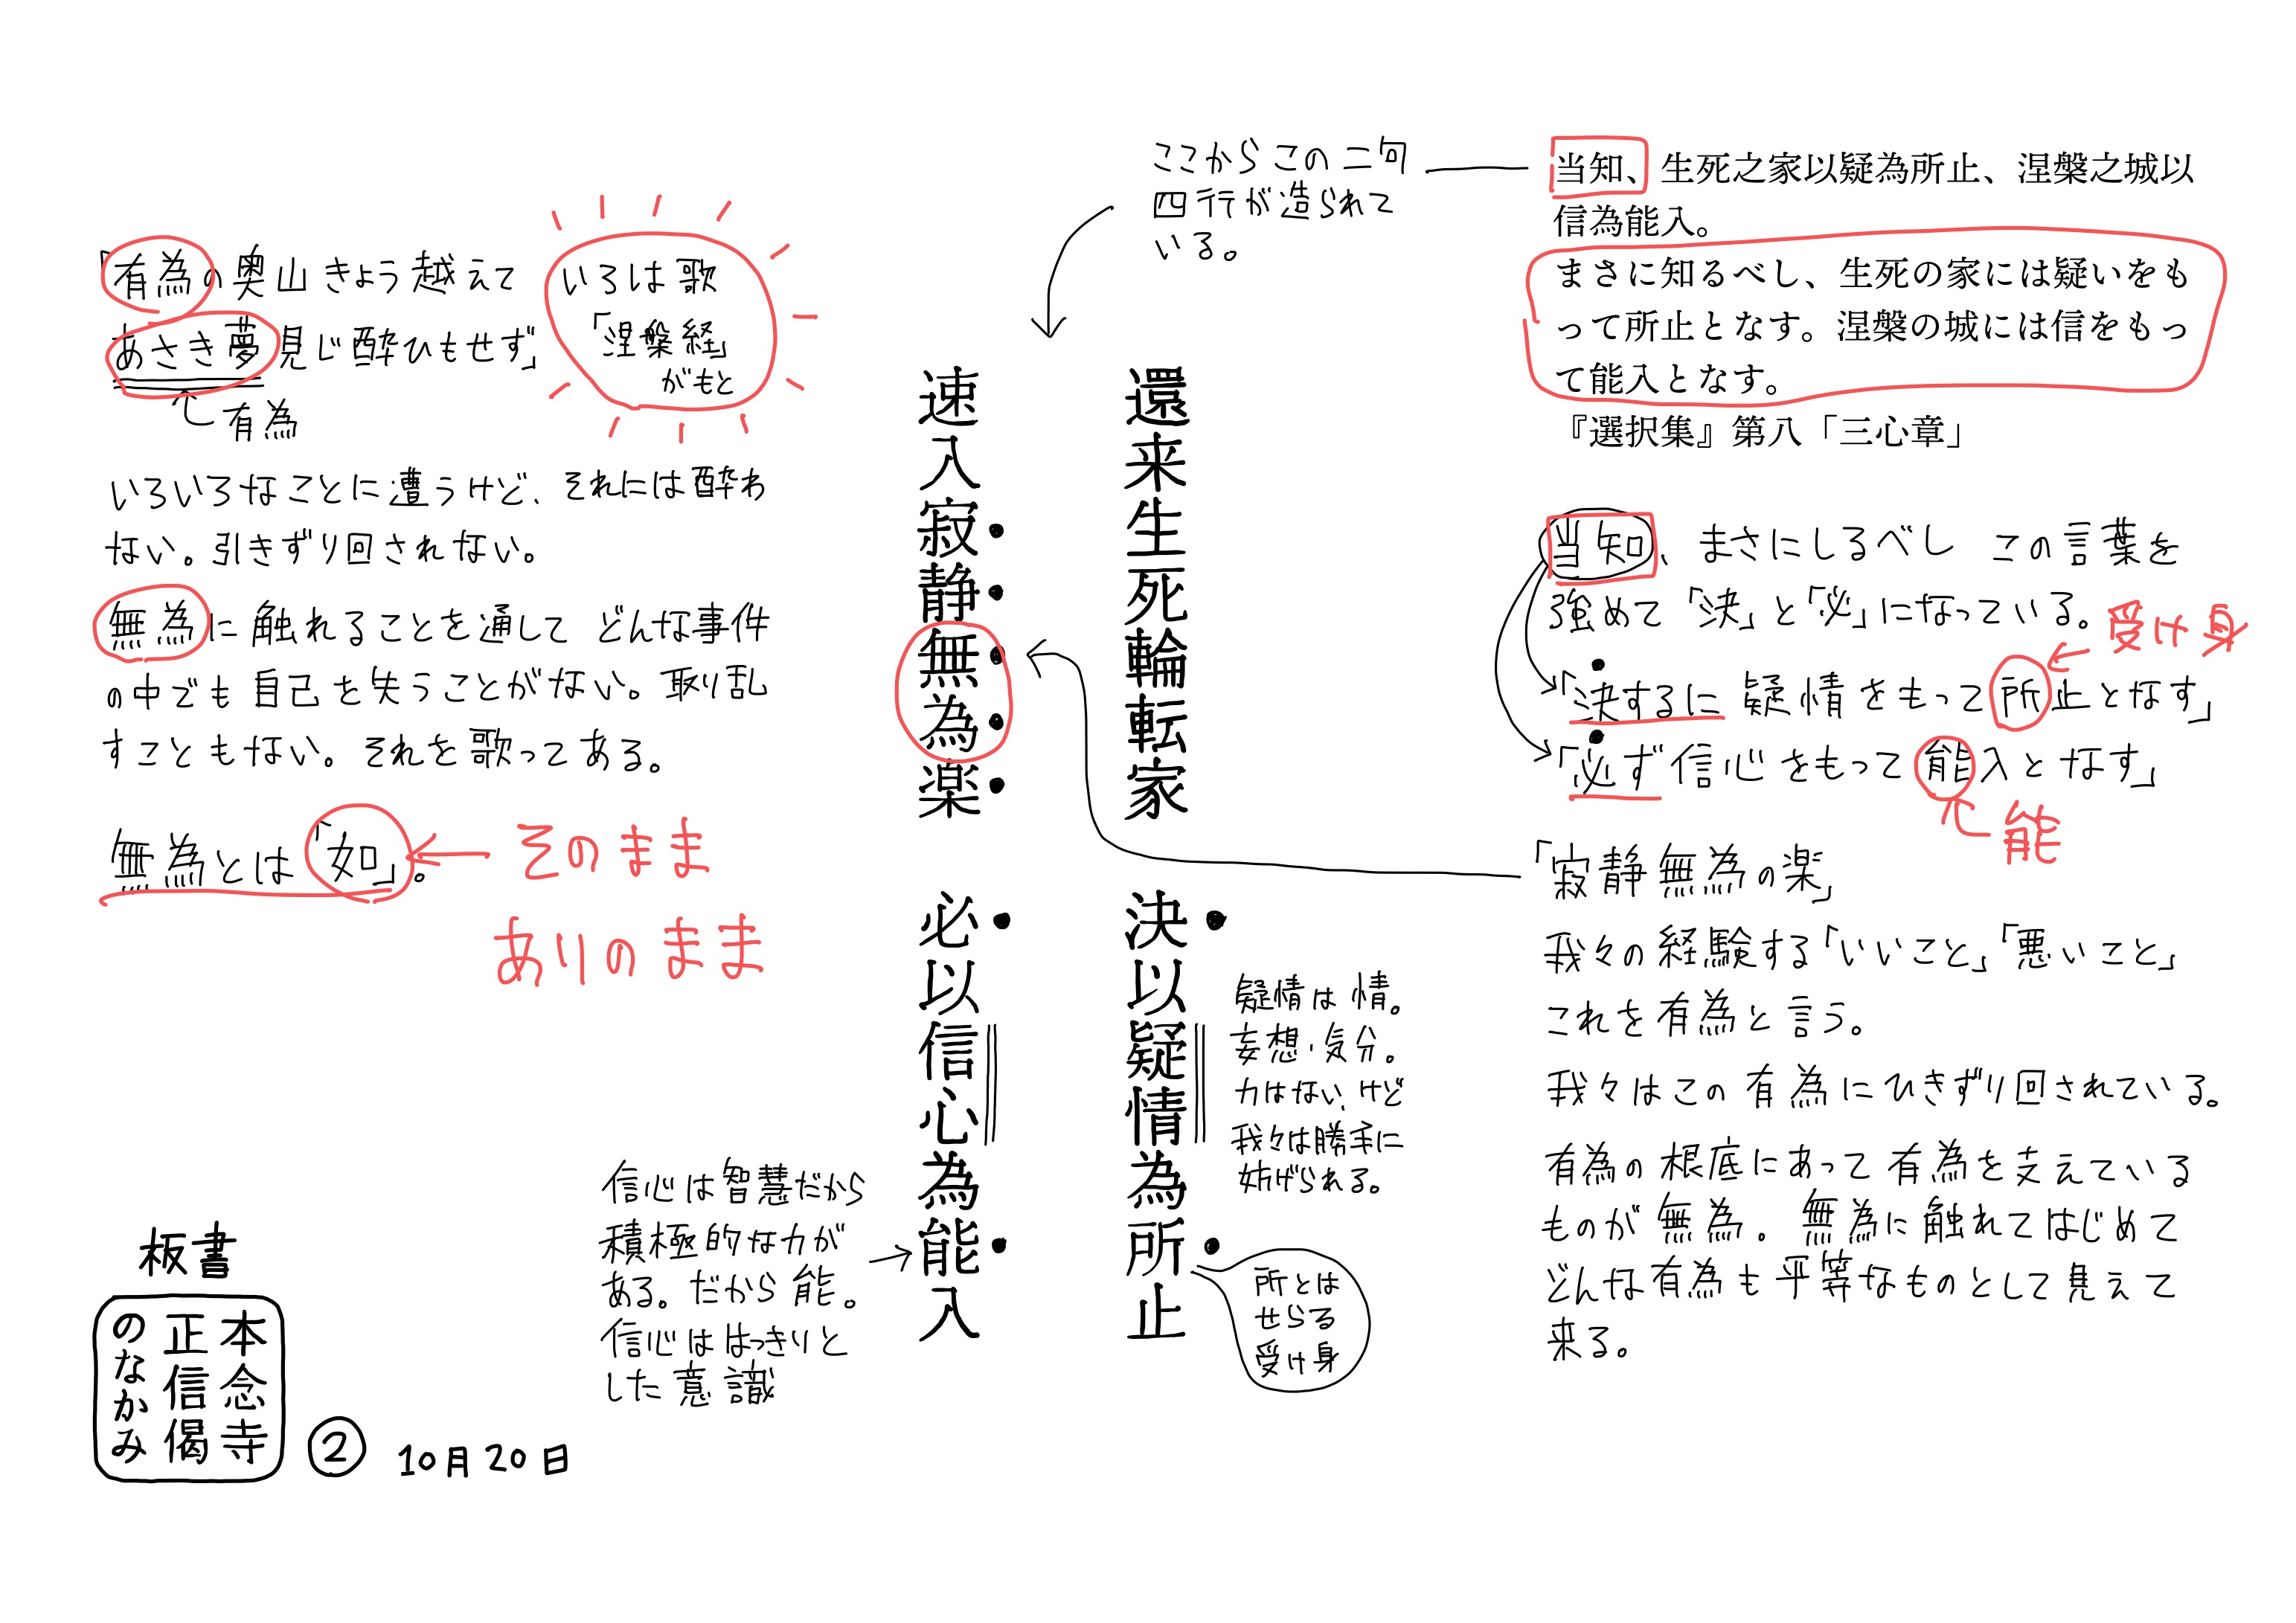 当知、生死之家以疑為所止、涅槃之城以
信為能入。
まさに知るべし、生死の家には疑いをも
って所止となす。涅槃の城には信をもっ
て能入となす。
『選択集』第八「三心章」
ここからこの二句
四行が造られて
いる。
当知、まさにしるべし この言葉を
強めて「決」と「必」になっている。
受け身
「決するに疑情をもって所止となす」
「必ず信心をもって能入となす」
能
「寂静無為の楽」
我々の経験する「いいこと」「悪いこと」
これを有為と言う。
我々はこの有為にひきずり回されている。
有為の根底にあって有為を支えている
ものが無為。無為に触れてはじめて
どんな有為も平等なものとして見えて
来る。
還来生死輪転家 決以疑情為所止
疑情は情。
妄想・気分。
力はない、けど
我々は勝手に
妨げられる。
所とは
せらる
受け身
速入寂静無為楽 必以信心為能入
信心は智慧だから
積極的な力が
ある。だから能。
信心ははっきりと
した意識
「有為の奥山きょう越えて
あさき夢見じ酔ひもせず」
有為
いろは歌
「涅槃経」
がもと
いろいろなことに遭うけど、それには酔わ
ない。引きずり回されない。
無為に触れることを通してどんな事件
の中でも自己を失うことがない。取り乱
すこともない。それを歌ってある。
無為とは「如」。
そのまま
ありのまま
板書
本念寺
正信偈
のなかみ
② 10月20日